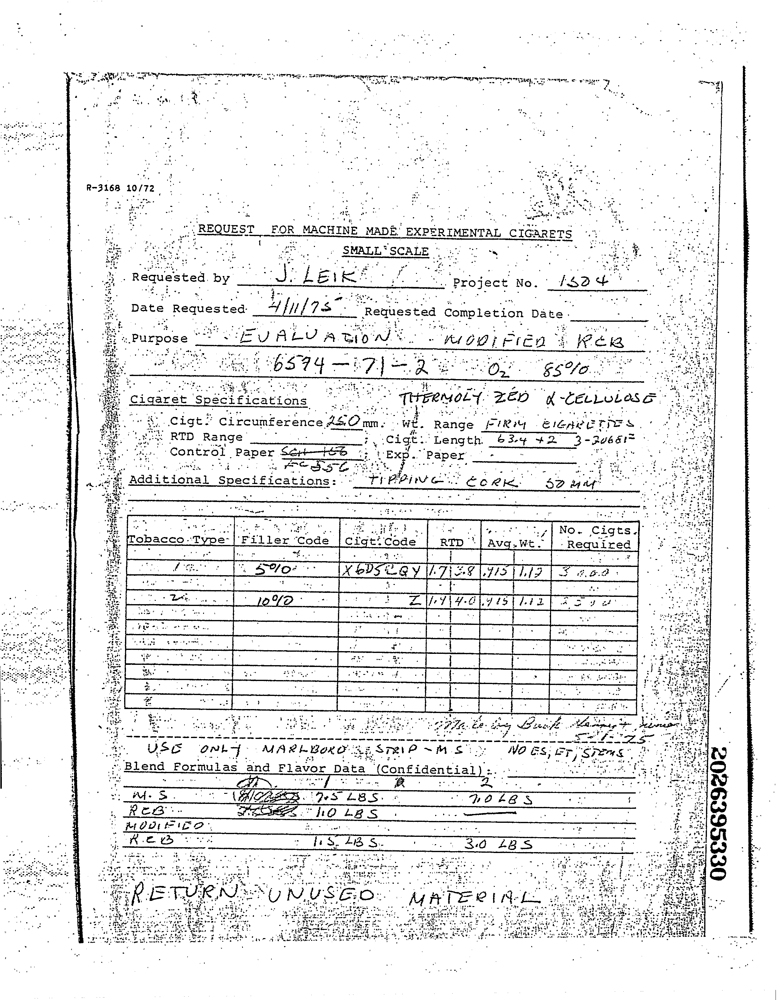 R-3168 10/72
REQUEST FOR MACHINE MADE EXPERIMENTAL CIGARETS
SMALL SCALE
Requested by J. LEIK Project No. 1504
Date Requested 4/11/75 Requested Completion Date
Purpose EVALUATION MODIFIED RCB
6594-171-2 O2 85%
Cigaret Specifications THERMOLYZED α-CELLULOSE
Cigt. Circumference 25.0 mm. Wt. Range FIRM CIGARETTES
RTD Range ; Cigt. Length 63.4 +2
Control Paper ; Exp. Paper
Additional Specifications: TIPPING CORK 50 MM
Tobacco Type Filler Code Cigt. Code RTD Avg. Wt. No. Cigts. Required
1 5% 1.7 3.8 .915 1.12
2 10% Z 1.4 4.0 .915 1.12
5-1-75
USE ONLY MARLBORO STRIP - M S NO ES, ET, STEMS
Blend Formulas and Flavor Data (Confidential):
1 2
M.S. 7.5 LBS 7.0 LBS
RCB 1.0 LBS
MODIFIED
RCB 1.5 LBS 3.0 LBS
RETURN UNUSED MATERIAL
2026395330